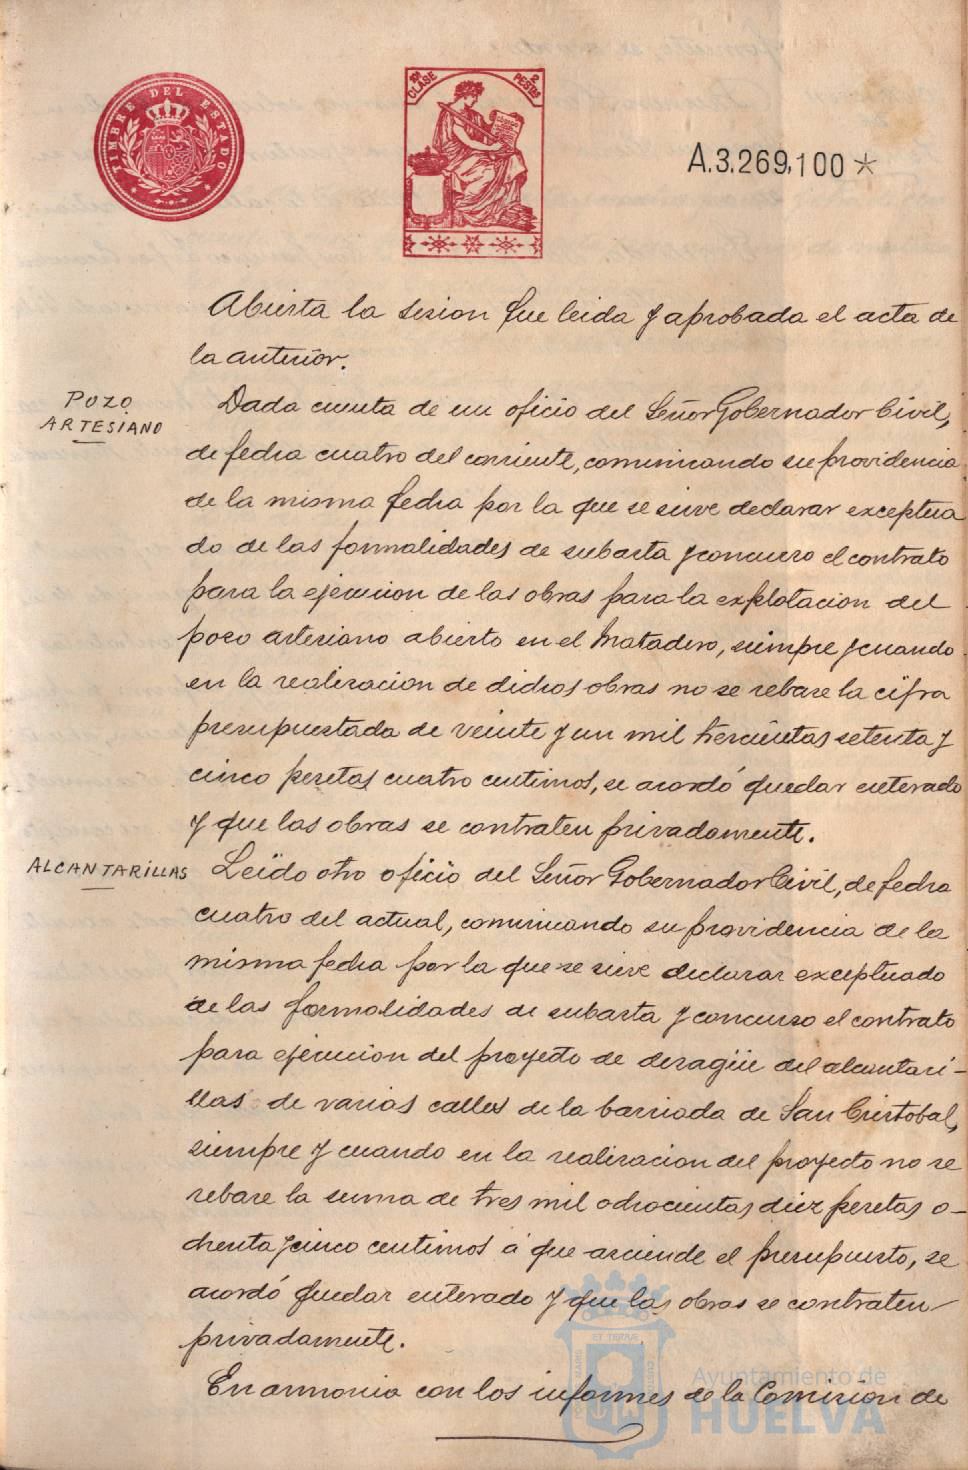 TIMBRE DEL ESTADO
10ª CLASE
2 PESTAS
A.3.269,100*
Abierta la sesion fue leida y aprobada el acta de
la anterior.
POZO
ARTESIANO
Dada cuenta de un oficio del Señor Gobernador Civil,
de fecha cuatro del corriente, comunicando su providencia
de la misma fecha por la que se sirve declarar exceptua
do de las formalidades de subasta y concurso el contrato
para la ejecucion de las obras para la explotacion del
pozo artesiano abierto en el Matadero, siempre y cuando
en la realizacion de dichas obras no se rebase la cifra
presupuestada de veinte y un mil trescientas setenta y
cinco pesetas cuatro centimos, se acordó quedar enterado
y que las obras se contraten privadamente.
ALCANTARILLAS
Leido otro oficio del Señor Gobernador Civil, de fecha
cuatro del actual, comunicando su providencia de la
misma fecha por la que se sirve declarar exceptuado
de las formalidades de subasta y concurso el contrato
para ejecucion del proyecto de desagüe del alcantari-
llas de varias calles de la barriada de San Cristobal,
siempre y cuando en la realizacion del proyecto no se
rebase la suma de tres mil ochocientas diez pesetas o-
chenta y cinco centimos á que asciende el presupuesto, se
acordó quedar enterado y que las obras se contraten
privadamente.
En armonia con los informes de la Comision de
ET TERRAE
Ayuntamiento de
HUELVA